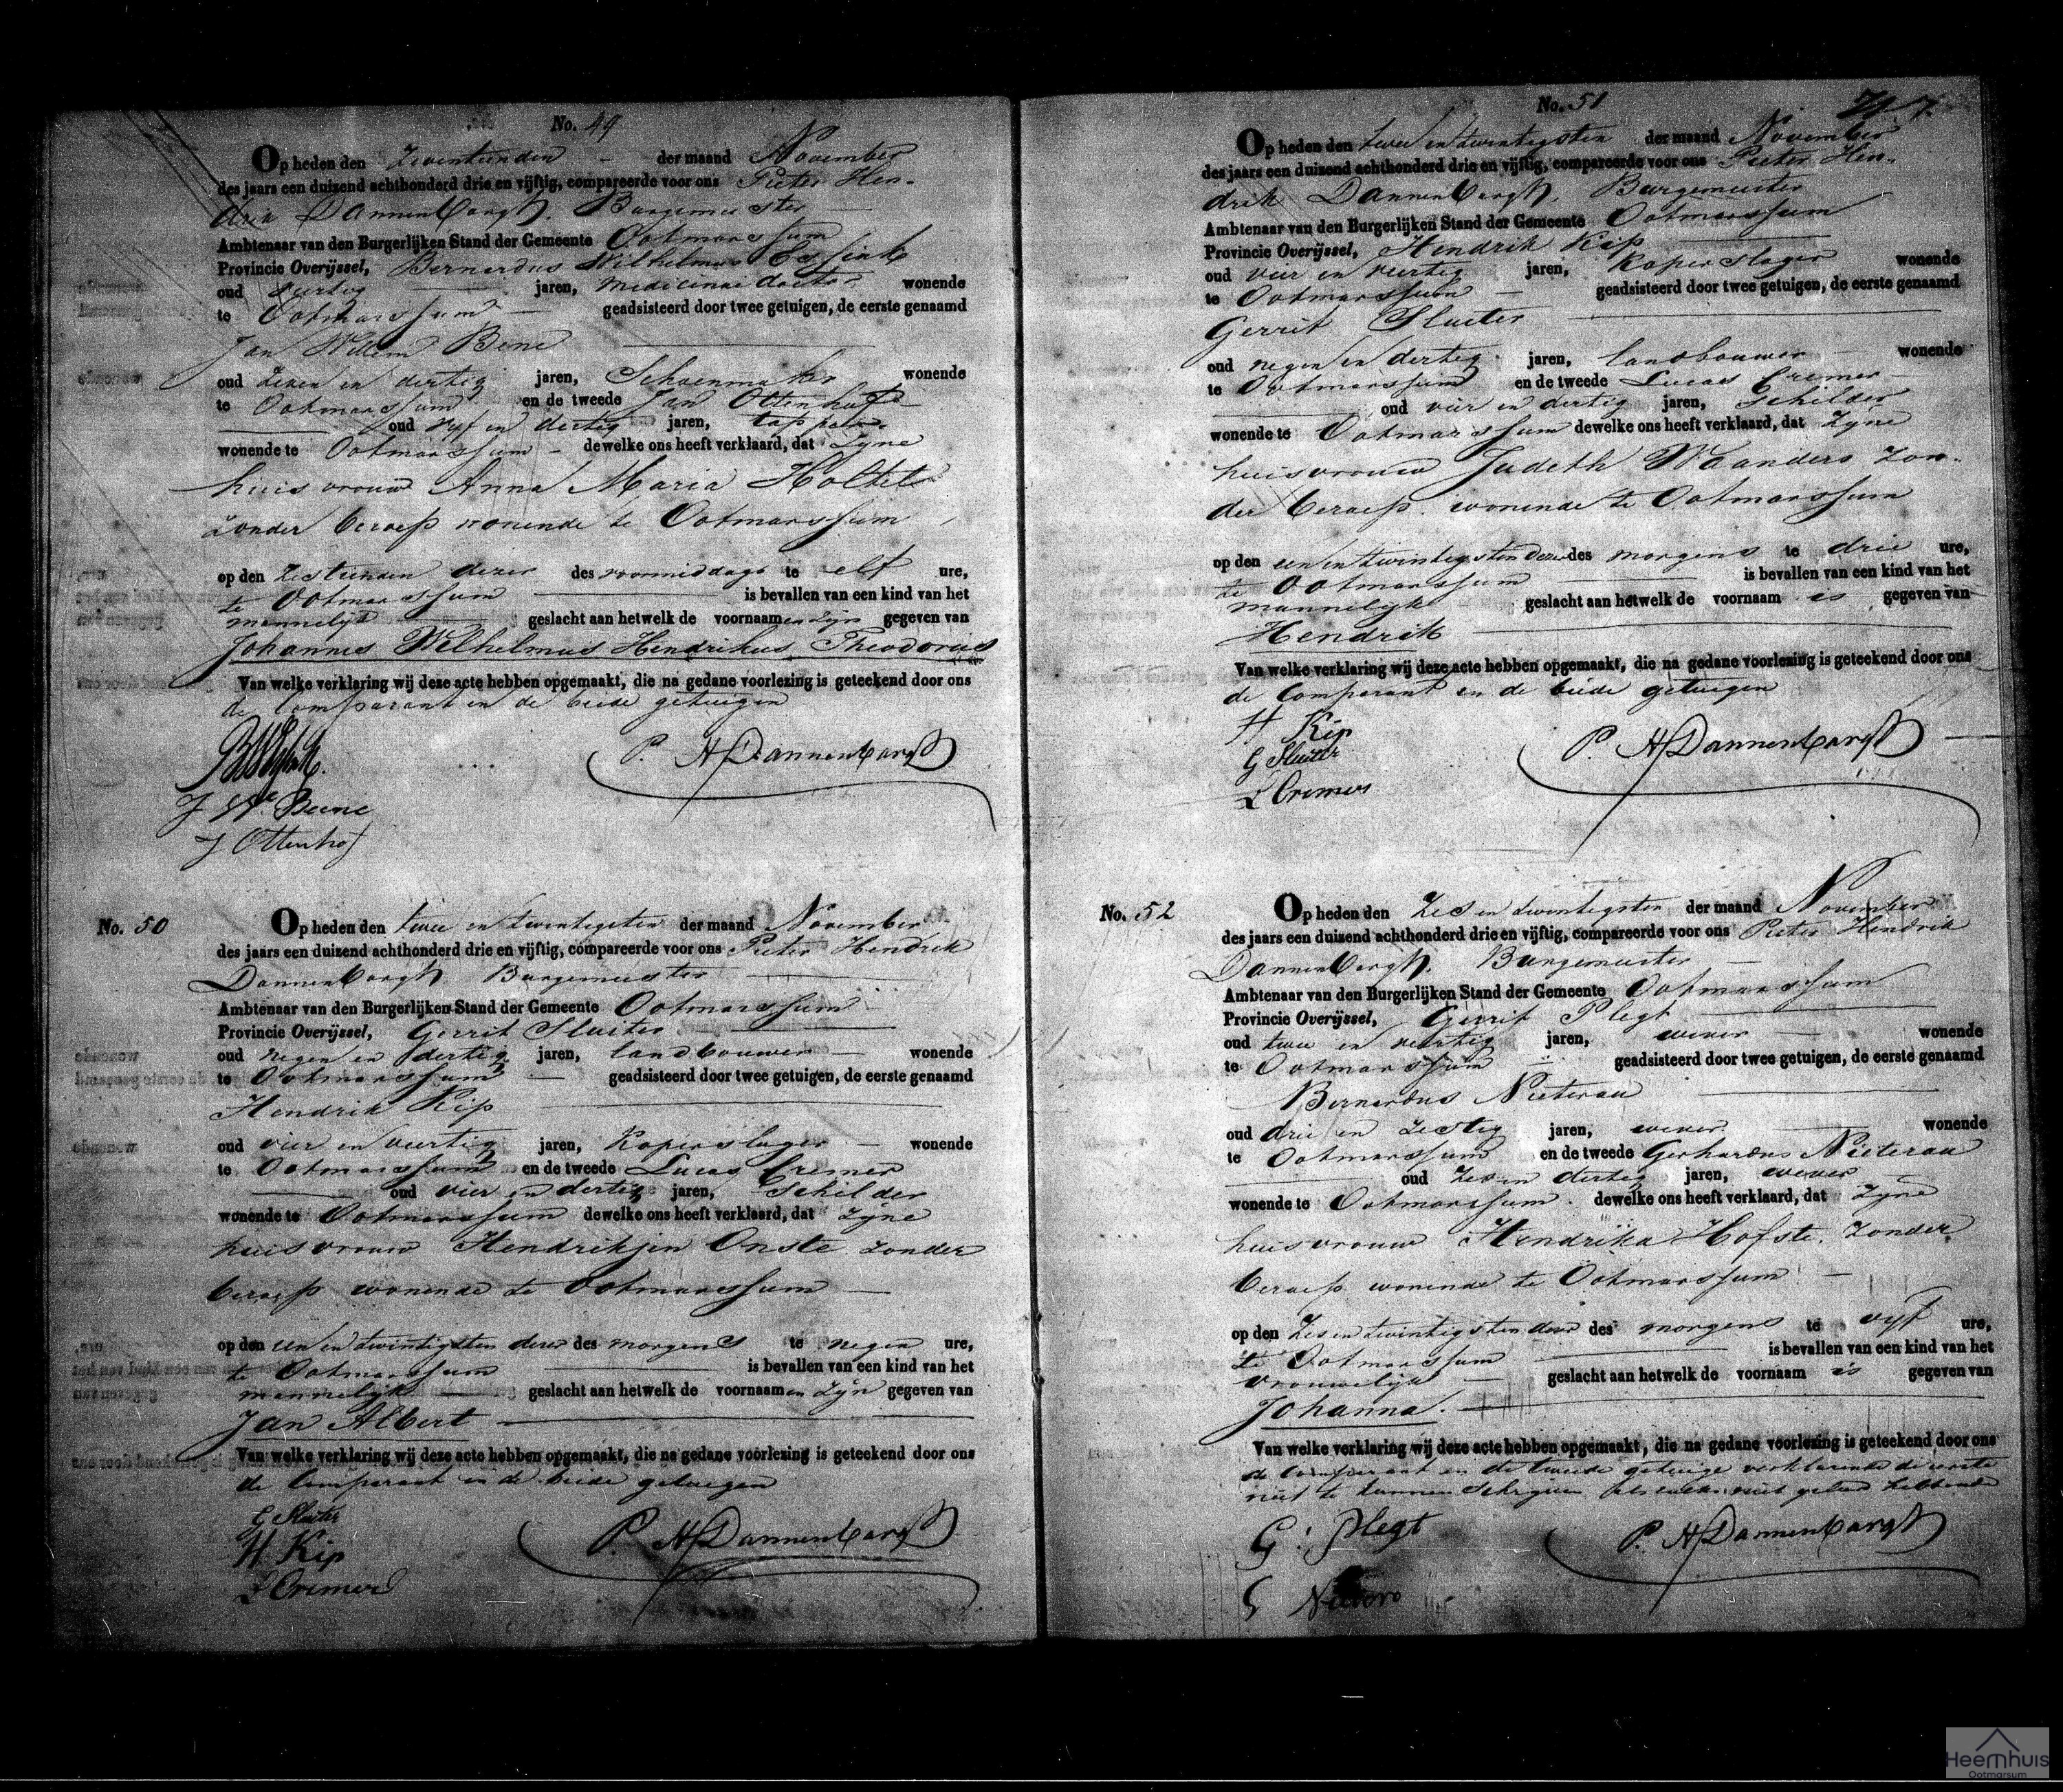 No. 49
Op heden den Zeventienden der maand November
des jaars een duizend achthonderd drie en vijftig, compareerde voor ons Pieter Hen-
drik Dannenbargh, Burgemeester
Ambtenaar van den Burgerlijken Stand der Gemeente Ootmarssum
Provincie Overijssel, Bernardus Wilhelmus Essink
oud veertig jaren, medicinae doctor wonende
te Ootmarssum geadsisteerd door twee getuigen, de eerste genaamd
Jan Willem Bene
oud zeven en dertig jaren, Schoenmaker wonende
te Ootmarssum en de tweede Jan Ottenhof
oud vyf en dertig jaren, tapper
wonende te Ootmarssum dewelke ons heeft verklaard, dat Zyne
huisvrouw Anna Maria Holtel
zonder beroep wonende te Ootmarssum
op den Zestienden dezer des voormiddags te elf ure,
te Ootmarssum is bevallen van een kind van het
mannelijk geslacht aan hetwelk de voornaamen zijn gegeven van
Johannes Wilhelmus Hendrikus Theodorus
Van welke verklaring wij deze acte hebben opgemaakt, die na gedane voorlezing is geteekend door ons
de Comparant en de beide getuigen
P. H Dannenbargh
J W Beene
J Ottenhof
No. 50
Op heden den twee en twintigsten der maand November
des jaars een duizend achthonderd drie en vijftig, compareerde voor ons Pieter Hendrik
Dannenbargh Burgemeester
Ambtenaar van den Burgerlijken Stand der Gemeente Ootmarssum
Provincie Overijssel, Gerrit Sluiter
oud negen en dertig jaren, landbouwer wonende
te Ootmarssum geadsisteerd door twee getuigen, de eerste genaamd
Hendrik Kip
oud vier en veertig jaren, Koperslager wonende
te Ootmarssum en de tweede Lucas Cremer
oud vier en dertig jaren, Schilder
wonende te Ootmarssum dewelke ons heeft verklaard, dat Zyne
huisvrouw Hendrikjen Onste zonder
beroep wonende te Ootmarssum
op den een en twintigsten dezer des morgens te negen ure,
te Ootmarssum is bevallen van een kind van het
mannelijk geslacht aan hetwelk de voornaamen zyn gegeven van
Jan Albert
Van welke verklaring wij deze acte hebben opgemaakt, die na gedane voorlezing is geteekend door ons
de Comparant en de beide getuigen
G Sluiter
H Kip
L Cremer
P. H Dannenbargh
No. 51
Op heden den twee en twintigsten der maand November
des jaars een duizend achthonderd drie en vijftig, compareerde voor ons Pieter Hen-
drik Dannenbargh, Burgemeester
Ambtenaar van den Burgerlijken Stand der Gemeente Ootmarssum
Provincie Overijssel, Hendrik Kip
oud vier en veertig jaren, Koperslager wonende
te Ootmarssum geadsisteerd door twee getuigen, de eerste genaamd
Gerrit Sluiter
oud negen en dertig jaren, landbouwer wonende
te Ootmarssum en de tweede Lucas Cremer
oud vier en dertig jaren, Schilder
wonende te Ootmarssum dewelke ons heeft verklaard, dat Zyne
huisvrouw Judeth Waanders zon-
der beroep wonende te Ootmarssum
op den een en twintigsten dezer des morgens te drie ure,
te Ootmarssum is bevallen van een kind van het
mannelijk geslacht aan hetwelk de voornaam is gegeven van
Hendrik
Van welke verklaring wij deze acte hebben opgemaakt, die na gedane voorlezing is geteekend door ons
de Comparant en de beide getuigen
H Kip
G Sluiter
L Cremer
P. H Dannenbargh
No. 52
Op heden den Zes en twintigsten der maand November
des jaars een duizend achthonderd drie en vijftig, compareerde voor ons Pieter Hendrik
Dannenbargh, Burgemeester
Ambtenaar van den Burgerlijken Stand der Gemeente Ootmarssum
Provincie Overijssel, Gerrit Plegt
oud twee en veertig jaren, wever wonende
te Ootmarssum geadsisteerd door twee getuigen, de eerste genaamd
Bernardus Nieterau
oud drie en zestig jaren, wever wonende
te Ootmarssum en de tweede Gerhardus Nieterau
oud Zes en dertig jaren, wever
wonende te Ootmarssum dewelke ons heeft verklaard, dat Zyne
huisvrouw Hendrika Hofste, zonder
beroep wonende te Ootmarssum
op den Zes en twintigsten dezer des morgens te vyf ure,
te Ootmarssum is bevallen van een kind van het
vrouwelijk geslacht aan hetwelk de voornaam is gegeven van
Johanna.
Van welke verklaring wij deze acte hebben opgemaakt, die na gedane voorlezing is geteekend door ons
de Comparant en de tweede getuige verklarende de eerste
niet te kunnen schryven als zulks niet geleerd hebbende
G: Plegt
P. H Dannenbargh
Heemhuis
Ootmarsum